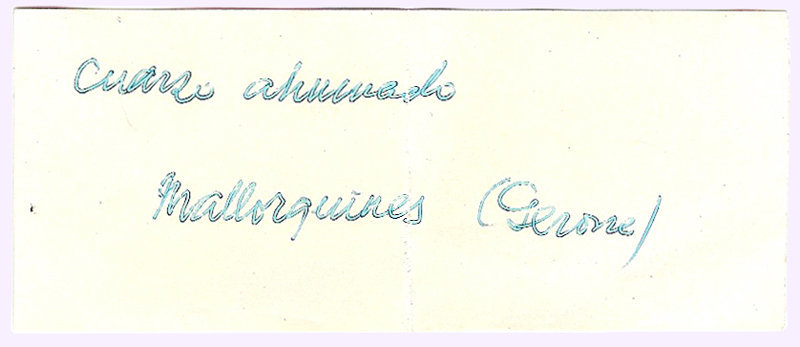 Cuarzo ahumado
Mallorquines (Gerone)